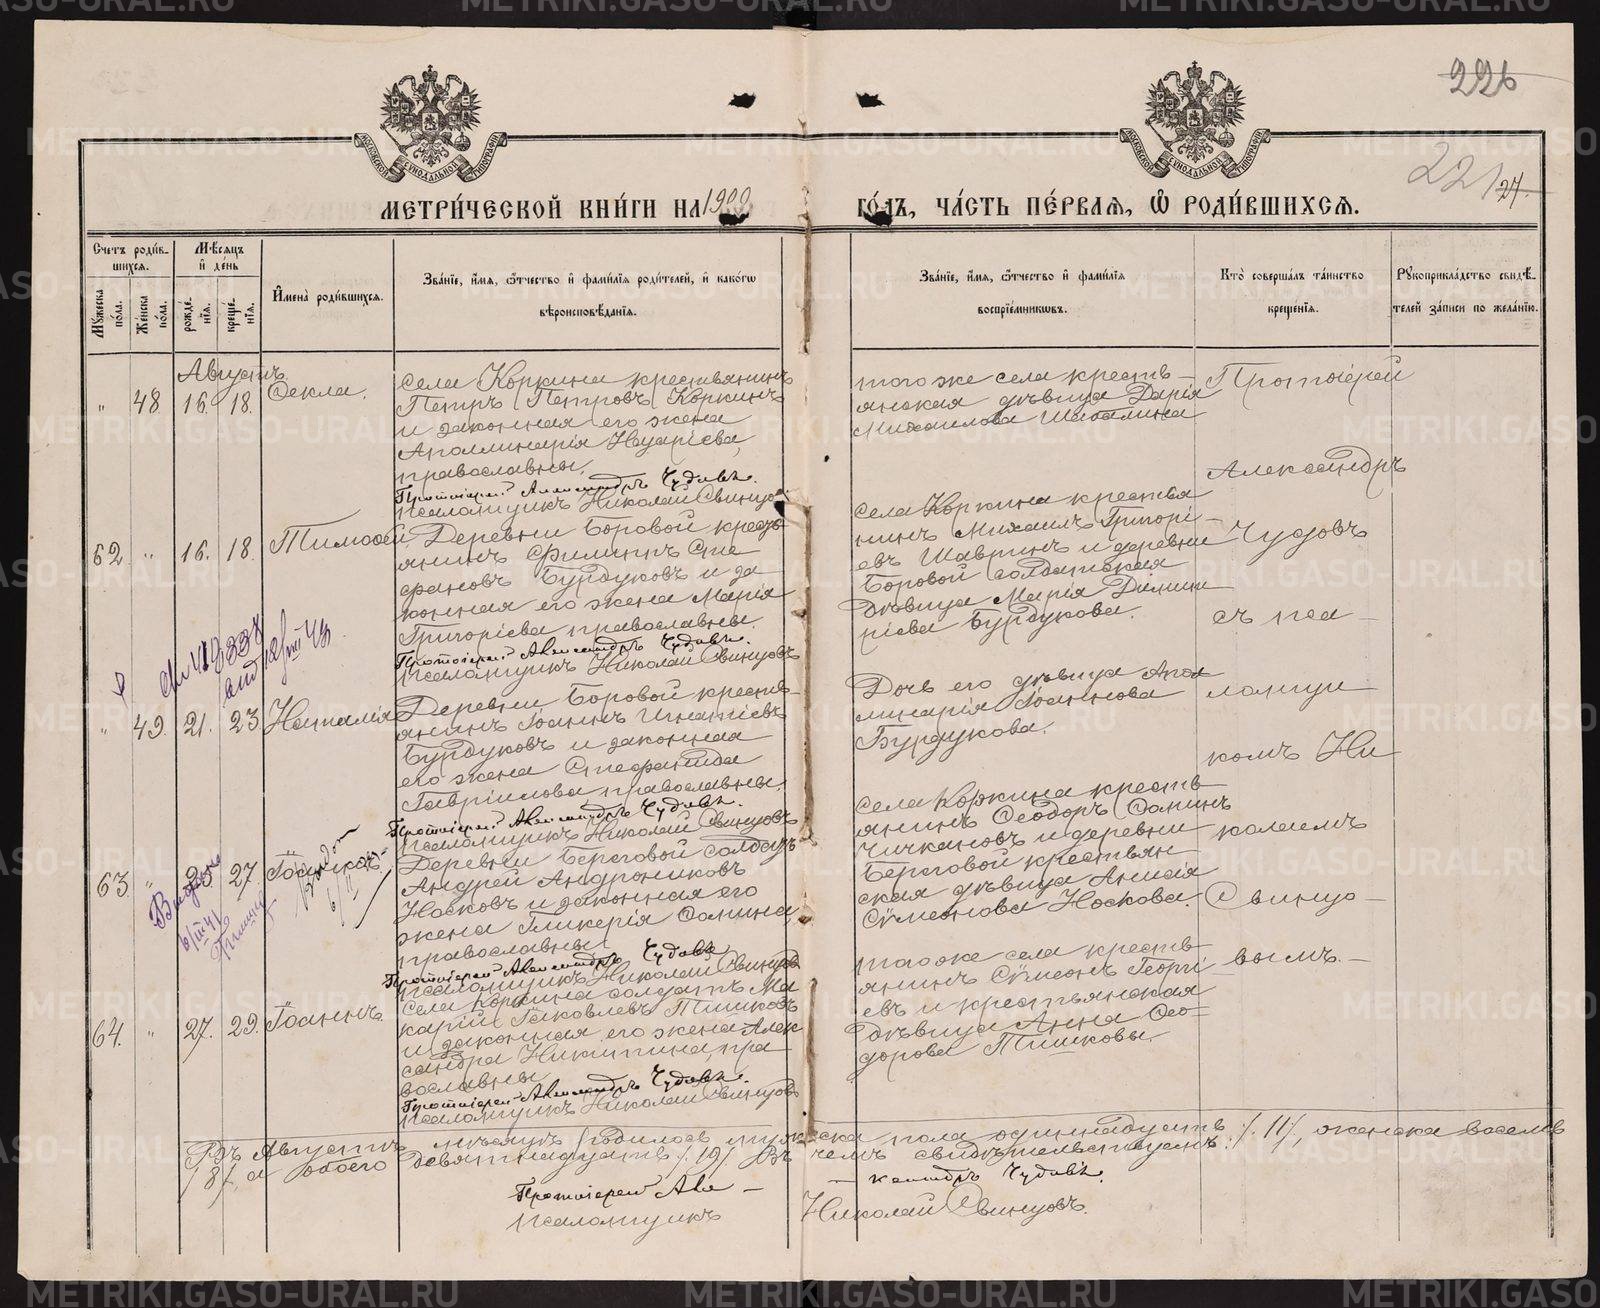 226
221
24.
МЕТРИ́ЧЕСКОЙ КНИ́ГИ НА 1900
ГО́ДЪ, ЧА́СТЬ ПЕ́РВАЯ, Ѿ РОДИ́ВШИХСЯ.
Счетъ роди́вшихся.
Мѣ́сяцъ и́ день
Му́жеска по́ла.
Же́нска по́ла.
рожде́нія.
креще́нія.
И҆мена̀ роди́вшихся.
Зва́ніе, и҆́мя, ѻ҆́тчество и҆ фами́лія роди́телей, и҆ како́гѡ вѣроисповѣ́данія.
Зва́ніе, и҆́мя, ѻ҆́тчество и҆ фами́лія воспріе́мникѡвъ.
Кто̀ соверша́лъ та́инство креще́нія.
Рукоприкла́дство свидѣ́телей за́писи по жела́нію.
Августъ.
" 48 16. 18. Ѳекла.
села Коркина крестьянинъ
Петръ Петровъ Коркинъ
и законная его жена
Аполлинарія
православны.
Протоіерей Александръ Чудовъ.
псаломщикъ Николай Свинцовъ
того же села кресть-
янская дѣвица Дарія
Михаилова Шабалина
62 " 16. 18. Тимоѳей.
Деревни Боровой кресть-
янинъ Филиппъ Сте
фановъ Бурдуковъ и за
конная его жена Марія
Григоріева православны.
Протоіерей Александръ Чудовъ.
псаломщикъ Николай Свинцовъ
села Коркина крестья
нинъ Михаилъ Григорі-
евъ Шавринъ и деревни
Боровой солдатская
дѣвица Марія Димит
ріева Бурдукова.
" 49. 21. 23 Наталія
Деревни Боровой кресть-
янинъ Іоаннъ Игнатіевъ
Бурдуковъ и законная
его жена Стефанида
Гавріилова православны.
Протоіерей Александръ Чудовъ.
псаломщикъ Николай Свинцовъ
Дочь его дѣвица Апол
линарія Іоаннова
Бурдукова.
63. " 25 27
Деревни Береговой солдатъ
Андрей Андрониковъ
Носковъ и законная его
жена Гликерія Сомина,
православны.
Протоіерей Александръ Чудовъ
псаломщикъ Николай Свинцовъ
села Коркина кресть
янинъ Ѳеодоръ Соминъ
Чичкановъ и деревни
Береговой крестьян
ская дѣвица Анисія
Сѵмеонова Носкова.
64. " 27. 29. Іоаннъ.
Села Коркина солдатъ Ма
карій Іаковлевъ Тишковъ
и законная его жена Алек
сандра Никитина, пра
вославны
Протоіерей Александръ Чудовъ.
псаломщикъ Николай Свинцовъ
того же села кресть
янинъ Сѵмеонъ Георгі
евъ и крестьянская
дѣвица Анна Ѳео-
дорова Тишковы.
Протоіерей
Александръ
Чудовъ
съ пса-
ломщи-
комъ Ни
колаемъ
Свинцо-
вымъ.
Въ Августѣ мѣсяцѣ родилось мужеска пола одиннадцать /11/, женска восемь
/8/, а обоего девятнадцать /19/ въ чемъ свидѣтельствуемъ:
Протоіерей Але-
- ксандръ Чудовъ.
псаломщикъ Николай Свинцовъ.